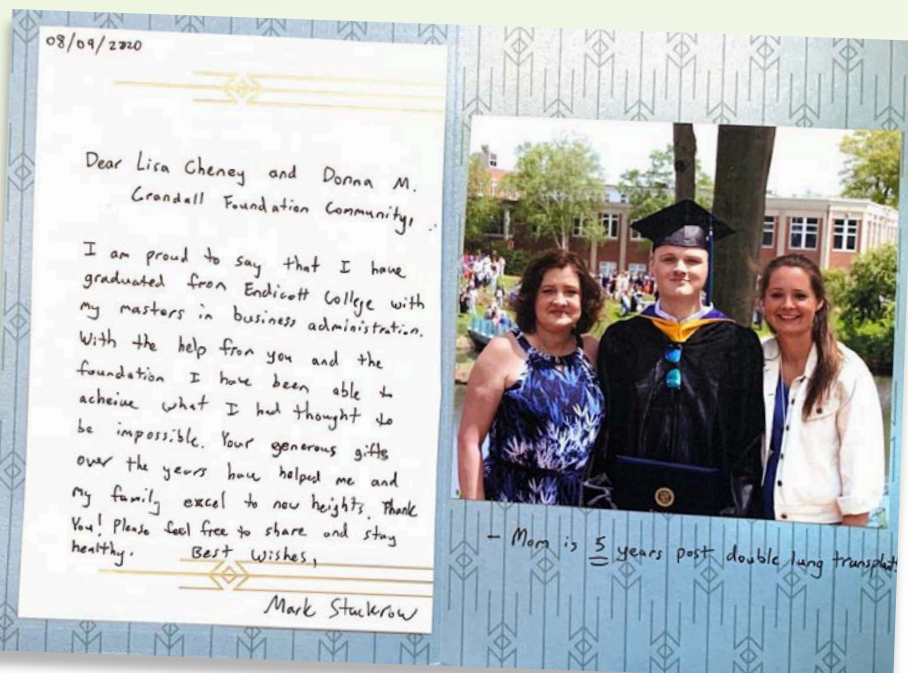 08/09/2020
Dear Lisa Cheney and Donna M.
Crandall Foundation Community,
I am proud to say that I have
graduated from Endicott College with
my masters in business administration.
With the help from you and the
foundation I have been able to
acheive what I had thought to
be impossible. Your generous gifts
over the years have helped me and
my family excel to new heights. Thank
You! Please feel free to share and stay
healthy.
Best Wishes,
Mark Stackrow
- Mom is 5 years post double lung transplant